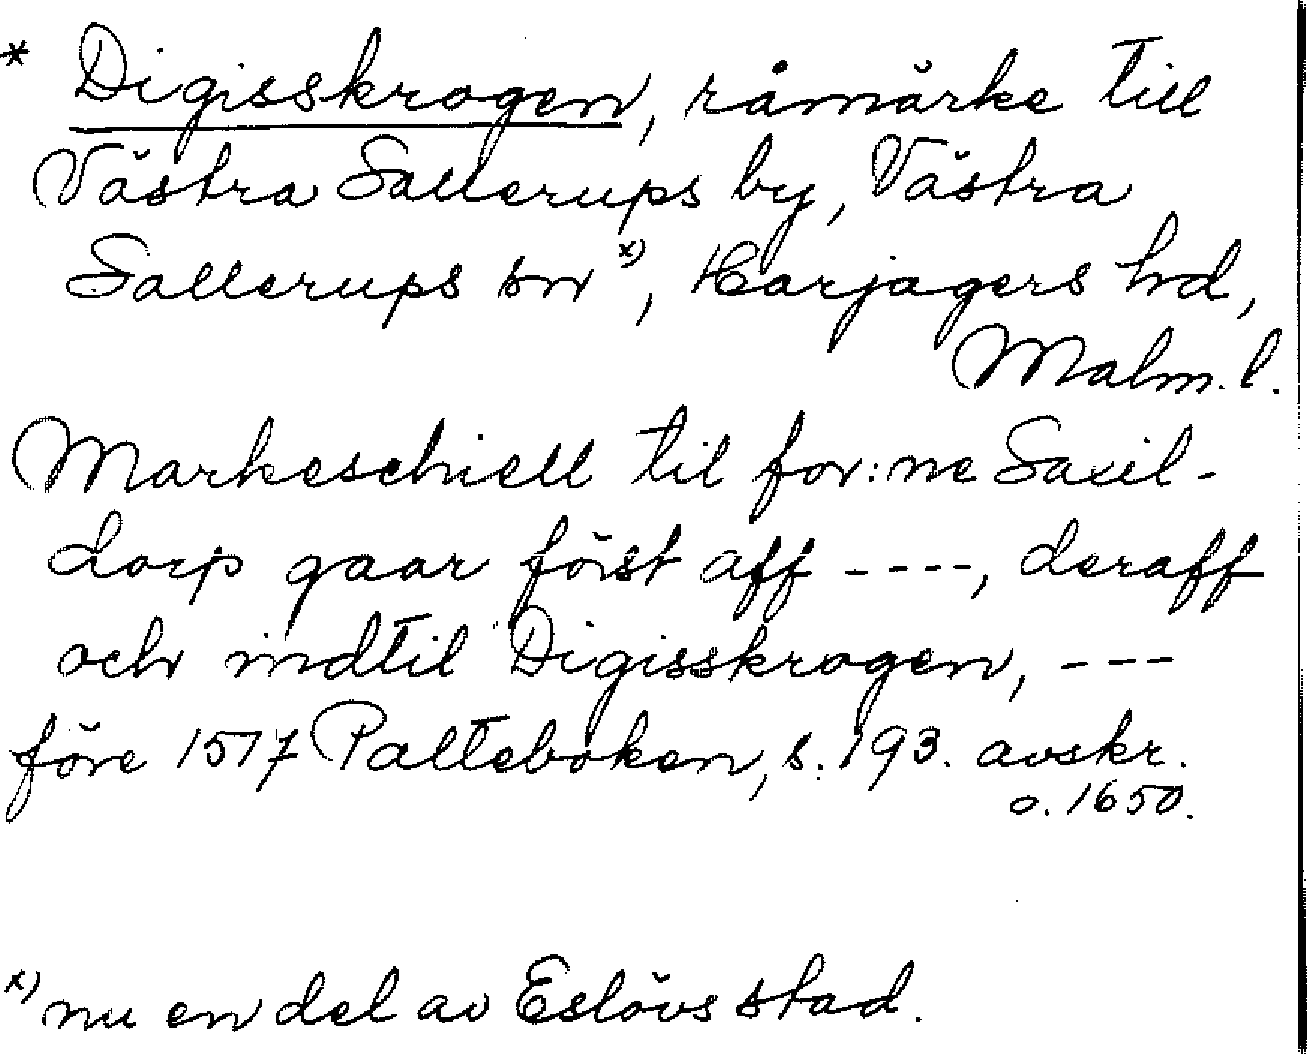 * Digisskrogen, råmärke till
Västra Sallerups by, Västra
Sallerups sn x), Harjagers hd,
Malm. l.
Markeschiell til for:ne Saxil-
dorp gaar först aff ----, deraff
och indtil Digisskrogen, ---
före 1517 Palteboken, s. 193. avskr.
o. 1650.
x) nu en del av Eslövs stad.